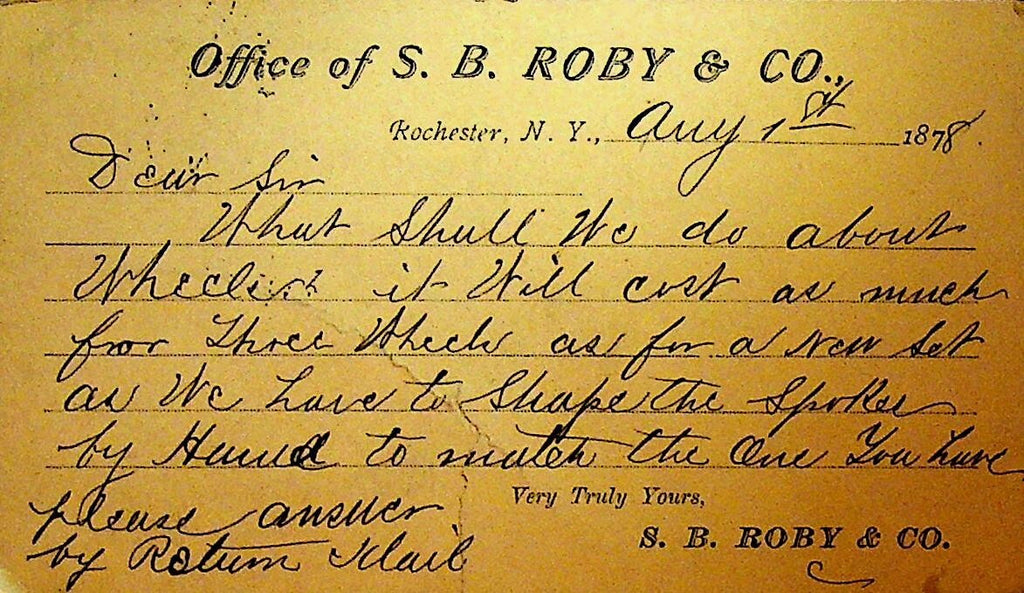 Office of S. B. ROBY & CO.,
Rochester, N. Y., Aug 1st 1878.
Dear Sir
What Shall We do about
Wheels it Will cost as much
for Three Wheels as for a New Set
as We have to Shape the Spokes
by Hand to match the One You have
please answer
by Return Mail
Very Truly Yours,
S. B. ROBY & CO.